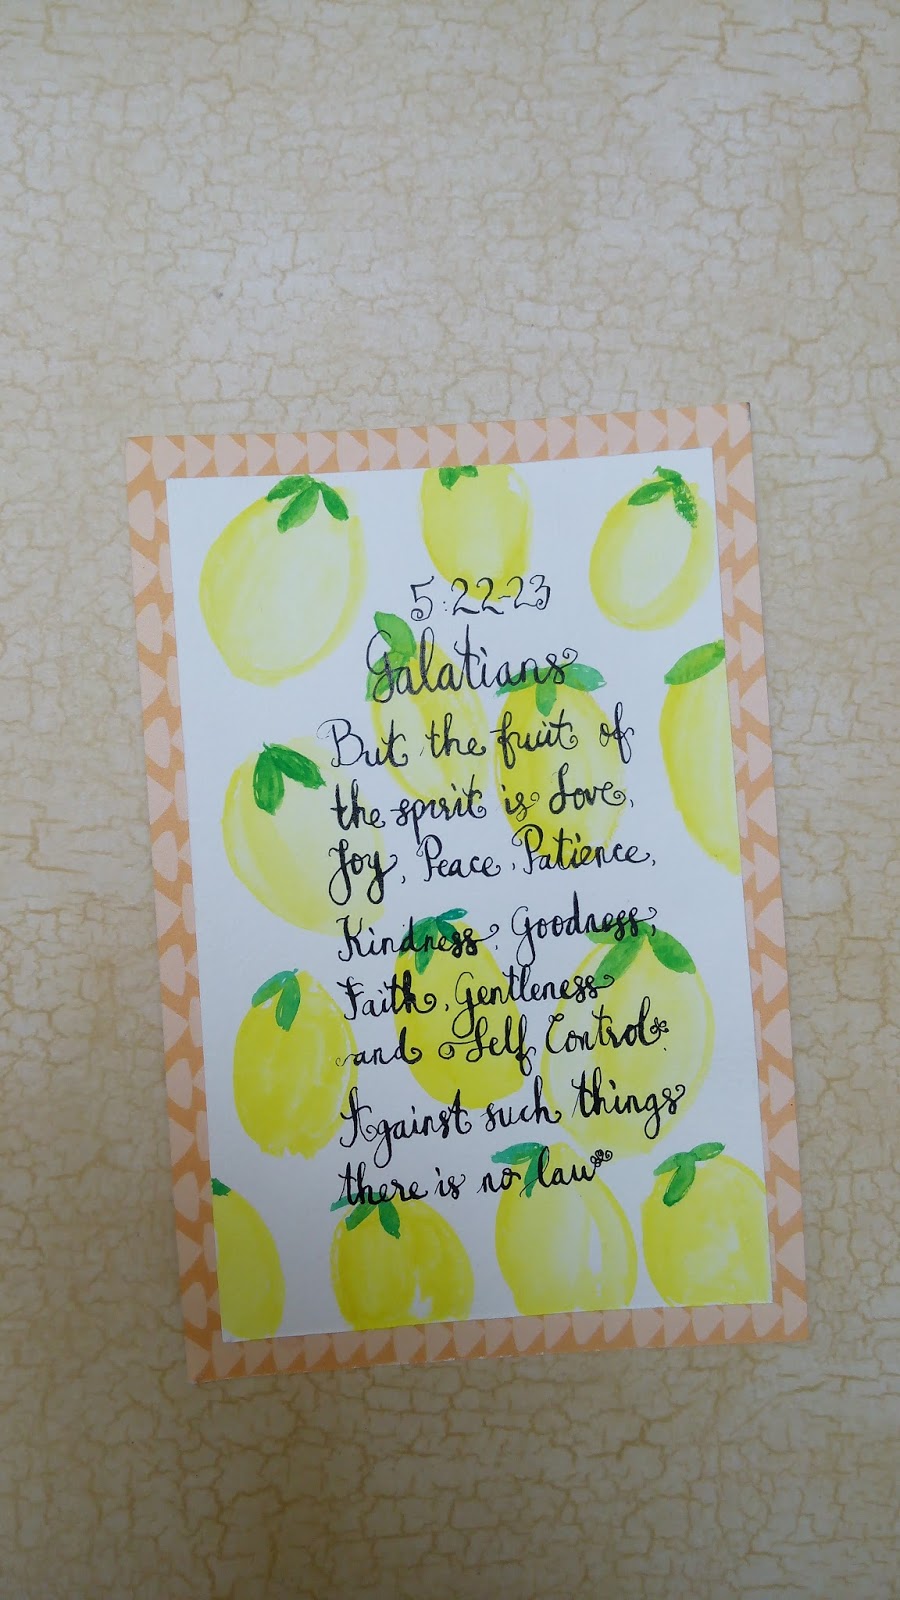 5:22-23
Galatians
But the fruit of
the spirit is Love,
Joy, Peace, Patience,
Kindness, Goodness,
Faith, Gentleness
and Self Control.
Against such things
there is no law